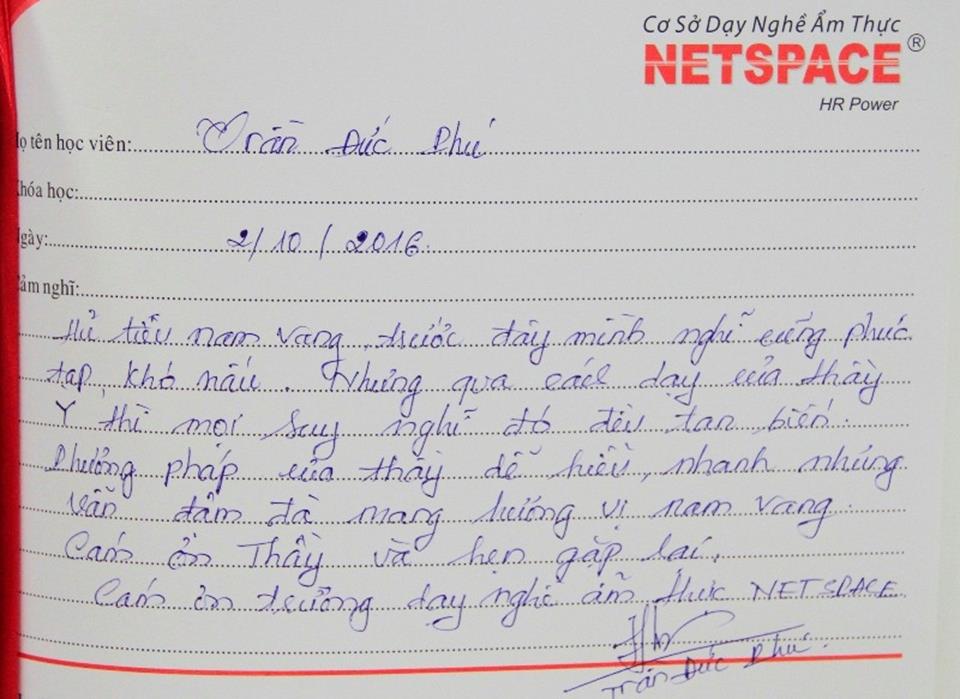 Cơ Sở Dạy Nghề Ẩm Thực
NETSPACE®
HR Power
ọ tên học viên: Trần Đức Phú
hóa học:
gày: 2/10/2016.
ảm nghĩ:
Hủ tiếu nam vang, trước đây mình nghĩ cũng phức
tạp, khó nấu. Nhưng qua cách dạy của thầy
Y thì mọi suy nghĩ đó đều tan biến.
Phương pháp của thầy dễ hiểu, nhanh nhưng
vẫn đậm đà mang hương vị nam vang.
Cám ơn Thầy và hẹn gặp lại.
Cám ơn trường dạy nghề ẩm thực NETSPACE
Trần Đức Phú.